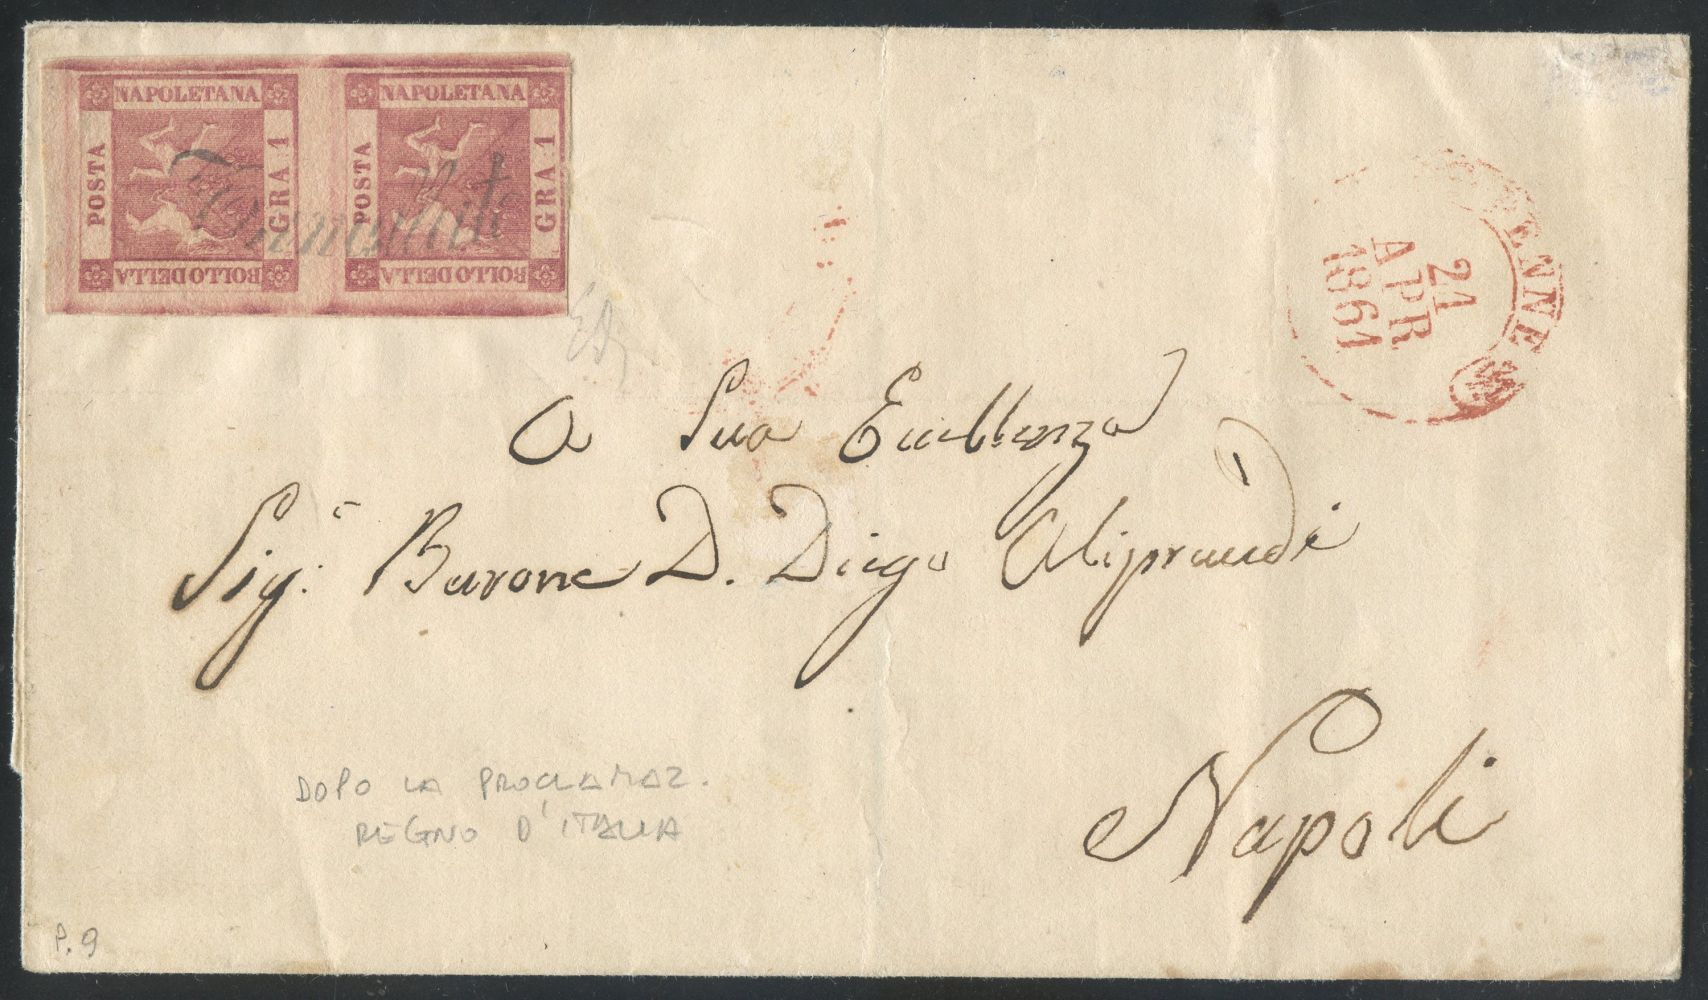 NAPOLETANA
POSTA
GRA 1
BOLLO DELLA
NAPOLETANA
POSTA
GRA 1
BOLLO DELLA
ENNE
21
APR
1861
A Sua Eccellenza
Sig.r Barone D. Diego Aliprandi
Napoli
DOPO LA PROCLAMAZ.
REGNO D'ITALIA
P. 9